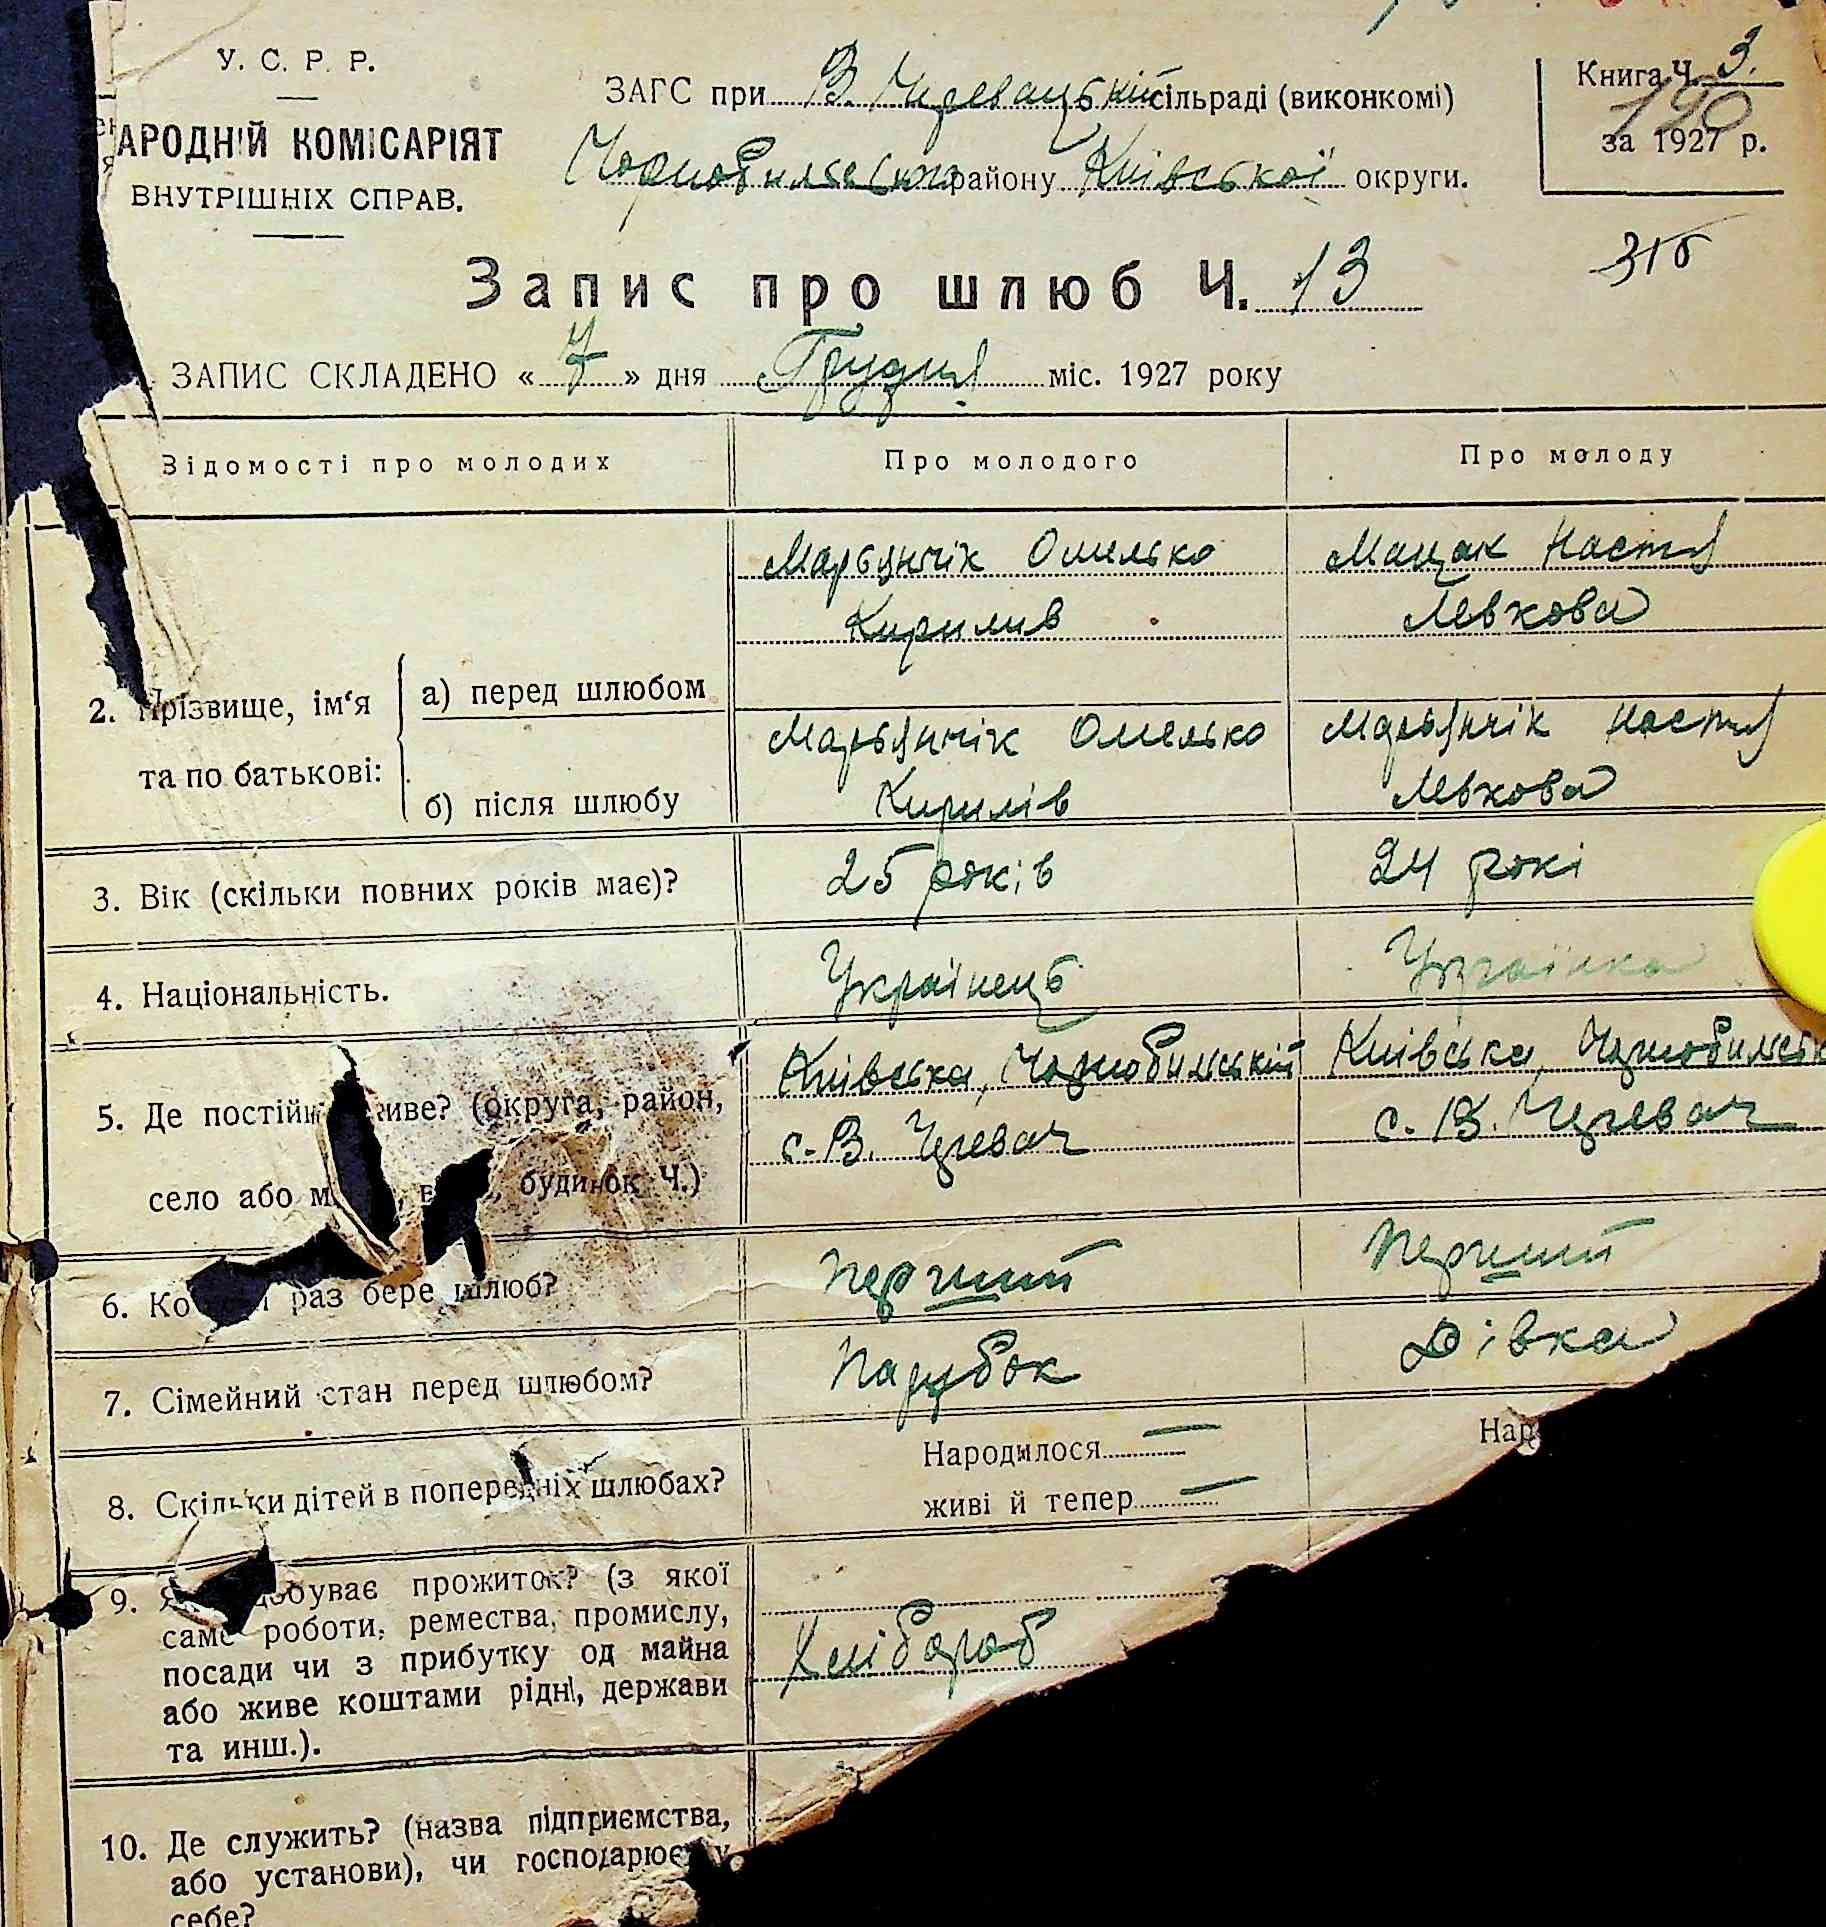 У. С. Р. Р.
АРОДНІЙ КОМІСАРІЯТ
ВНУТРІШНІХ СПРАВ.
ЗАГС при В. Черевацькій сільраді (виконкомі)
Чорнобильського району Київської округи.
Книга Ч. 3.
190
за 1927 р.
316
Запис про шлюб Ч. 13
ЗАПИС СКЛАДЕНО « 7 » дня Грудня міс. 1927 року
Відомості про молодих
Про молодого
Про молоду
2. Прізвище, ім‘я та по батькові:
а) перед шлюбом
Марьянчік Омелько
Кирилив
Мацак Настя
Левкова
б) після шлюбу
Марьянчік Омелько
Кирилів
Марьянчік Настя
Левкова
3. Вік (скільки повних років має)?
25 років
24 рокі
4. Національність.
Українець
Українка
5. Де постійн иве? (округа, район,
село або м , в , будинок Ч.)
Київська, Чорнобильській
с. В. Черевач
Київська, Чорнобильськ
с. В. Черевач
6. Ко й раз бере шлюб?
Перший
Перший
7. Сімейний стан перед шлюбом?
Парубок
Дівка
8. Скільки дітей в попередніх шлюбах?
Народилося —
живі й тепер —
Нар
9. Я добуває прожиток? (з якої
саме роботи, ремества, промислу,
посади чи з прибутку од майна
або живе коштами рідні, держави
та инш.).
Хлібороб
10. Де служить? (назва підприємства,
або установи), чи господарює у
себе?